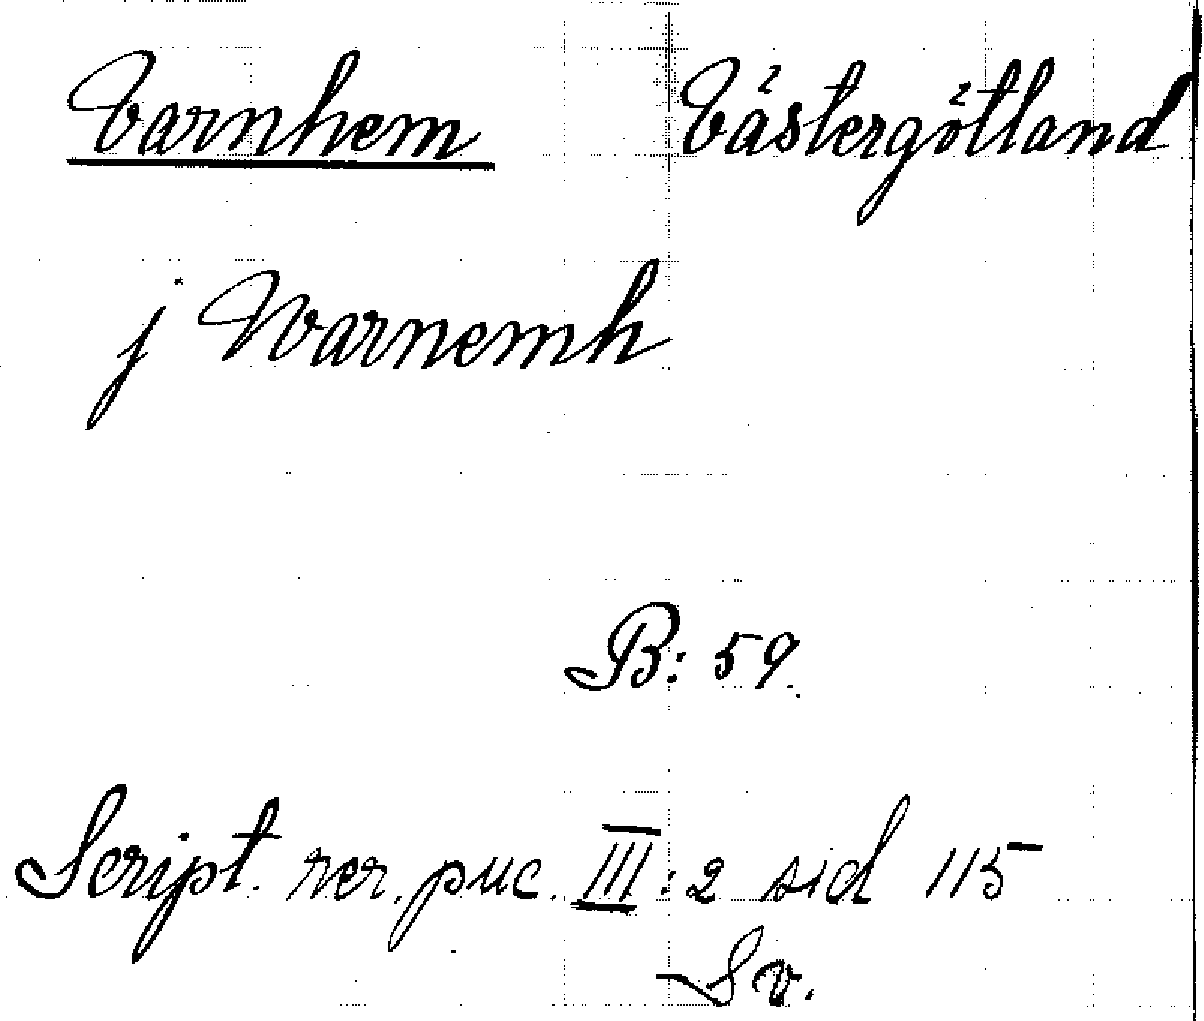 Varnhem Västergötland
j Warnemh
B: 59.
Script. rer. puc. III: 2 sid 115
Sv.